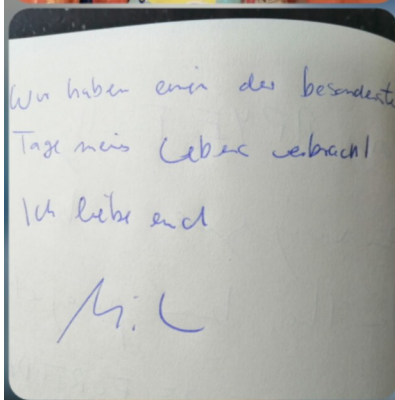 Wir haben einen der besonderste
Tage meins Lebens verbracht
Ich liebe euch
M. L